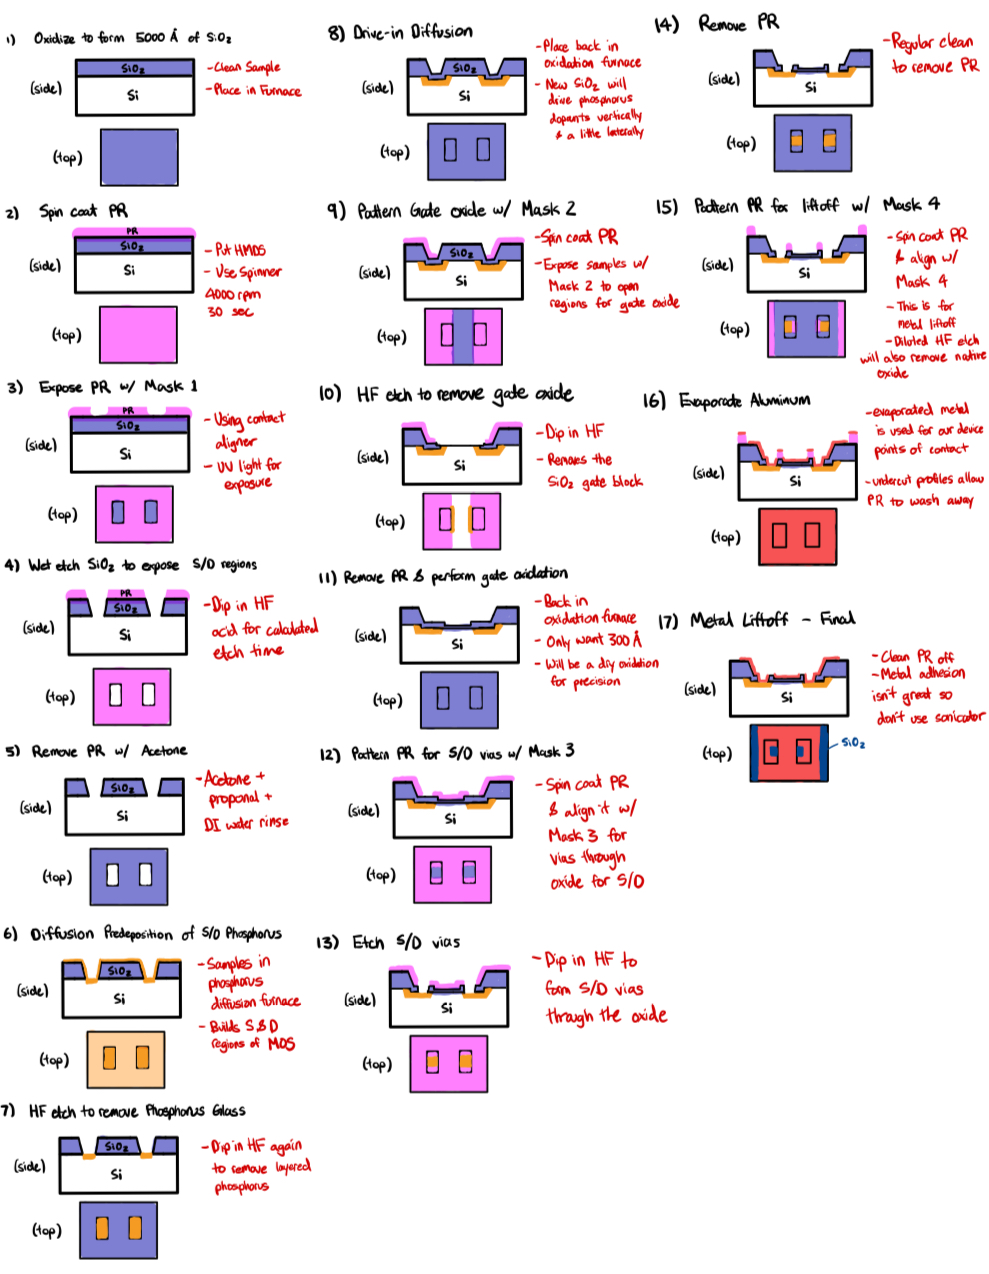 1) Oxidize to form 5000 Å of SiO₂
(side)
SiO₂
Si
- Clean Sample
- Place in Furnace
(top)
2) Spin coat PR
(side)
PR
SiO₂
Si
- Put HMDS
- Use Spinner
4000 rpm
30 sec
(top)
3) Expose PR w/ Mask 1
(side)
PR
SiO₂
Si
- Using contact
aligner
- UV light for
exposure
(top)
4) Wet etch SiO₂ to expose S/D regions
(side)
PR
SiO₂
Si
- Dip in HF
acid for calculated
etch time
(top)
5) Remove PR w/ Acetone
(side)
SiO₂
Si
- Acetone +
propanal +
DI water rinse
(top)
6) Diffusion Predeposition of S/D Phosphorus
(side)
SiO₂
Si
- Samples in
phosphorus
diffusion furnace
- Builds S & D
regions of MOS
(top)
7) HF etch to remove Phosphorus Glass
(side)
SiO₂
Si
- Dip in HF again
to remove layered
phosphorus
(top)
8) Drive-in Diffusion
(side)
SiO₂
Si
- Place back in
oxidation furnace
- New SiO₂ will
drive phosphorus
dopants vertically
& a little laterally
(top)
9) Pattern Gate oxide w/ Mask 2
(side)
SiO₂
Si
- Spin coat PR
- Expose samples w/
Mask 2 to open
regions for gate oxide
(top)
10) HF etch to remove gate oxide
(side)
Si
- Dip in HF
- Removes the
SiO₂ gate block
(top)
11) Remove PR & perform gate oxidation
(side)
Si
- Back in
oxidation furnace
- Only want 300 Å
- Will be a dry oxidation
for precision
(top)
12) Pattern PR for S/D vias w/ Mask 3
(side)
Si
- Spin coat PR
& align it w/
Mask 3 for
vias through
oxide for S/D
(top)
13) Etch S/D vias
(side)
Si
- Dip in HF to
form S/D vias
through the oxide
(top)
14) Remove PR
(side)
Si
- Regular clean
to remove PR
(top)
15) Pattern PR for liftoff w/ Mask 4
(side)
Si
- Spin coat PR
& align w/
Mask 4
- This is for
metal liftoff
- Diluted HF etch
will also remove native
oxide
(top)
16) Evaporate Aluminum
(side)
Si
- evaporated metal
is used for our device
points of contact
- undercut profiles allow
PR to wash away
(top)
17) Metal Liftoff - Final
(side)
Si
- Clean PR off
- Metal adhesion
isn't great so
don't use sonicator
(top)
SiO₂